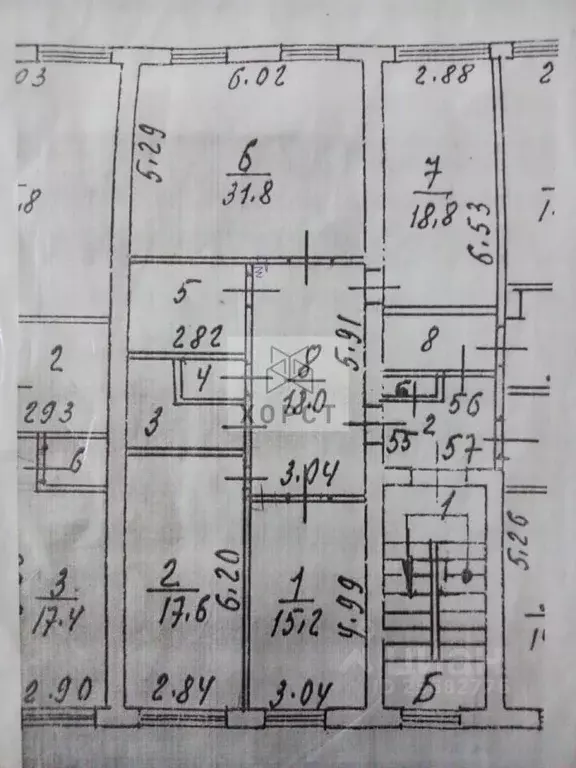 03
6.02
2.88
2
5.29
6
31.8
7
18,8
6.53
.8
1.
5
282
2
293
4
5.91
8
18.0
ХОРСТ
8
6
56
3
55
2
57
6
3.04
1
5.26
3
17.4
2
17.6
6.20
1
15.2
4.99
2.90
2.84
3.04
Б